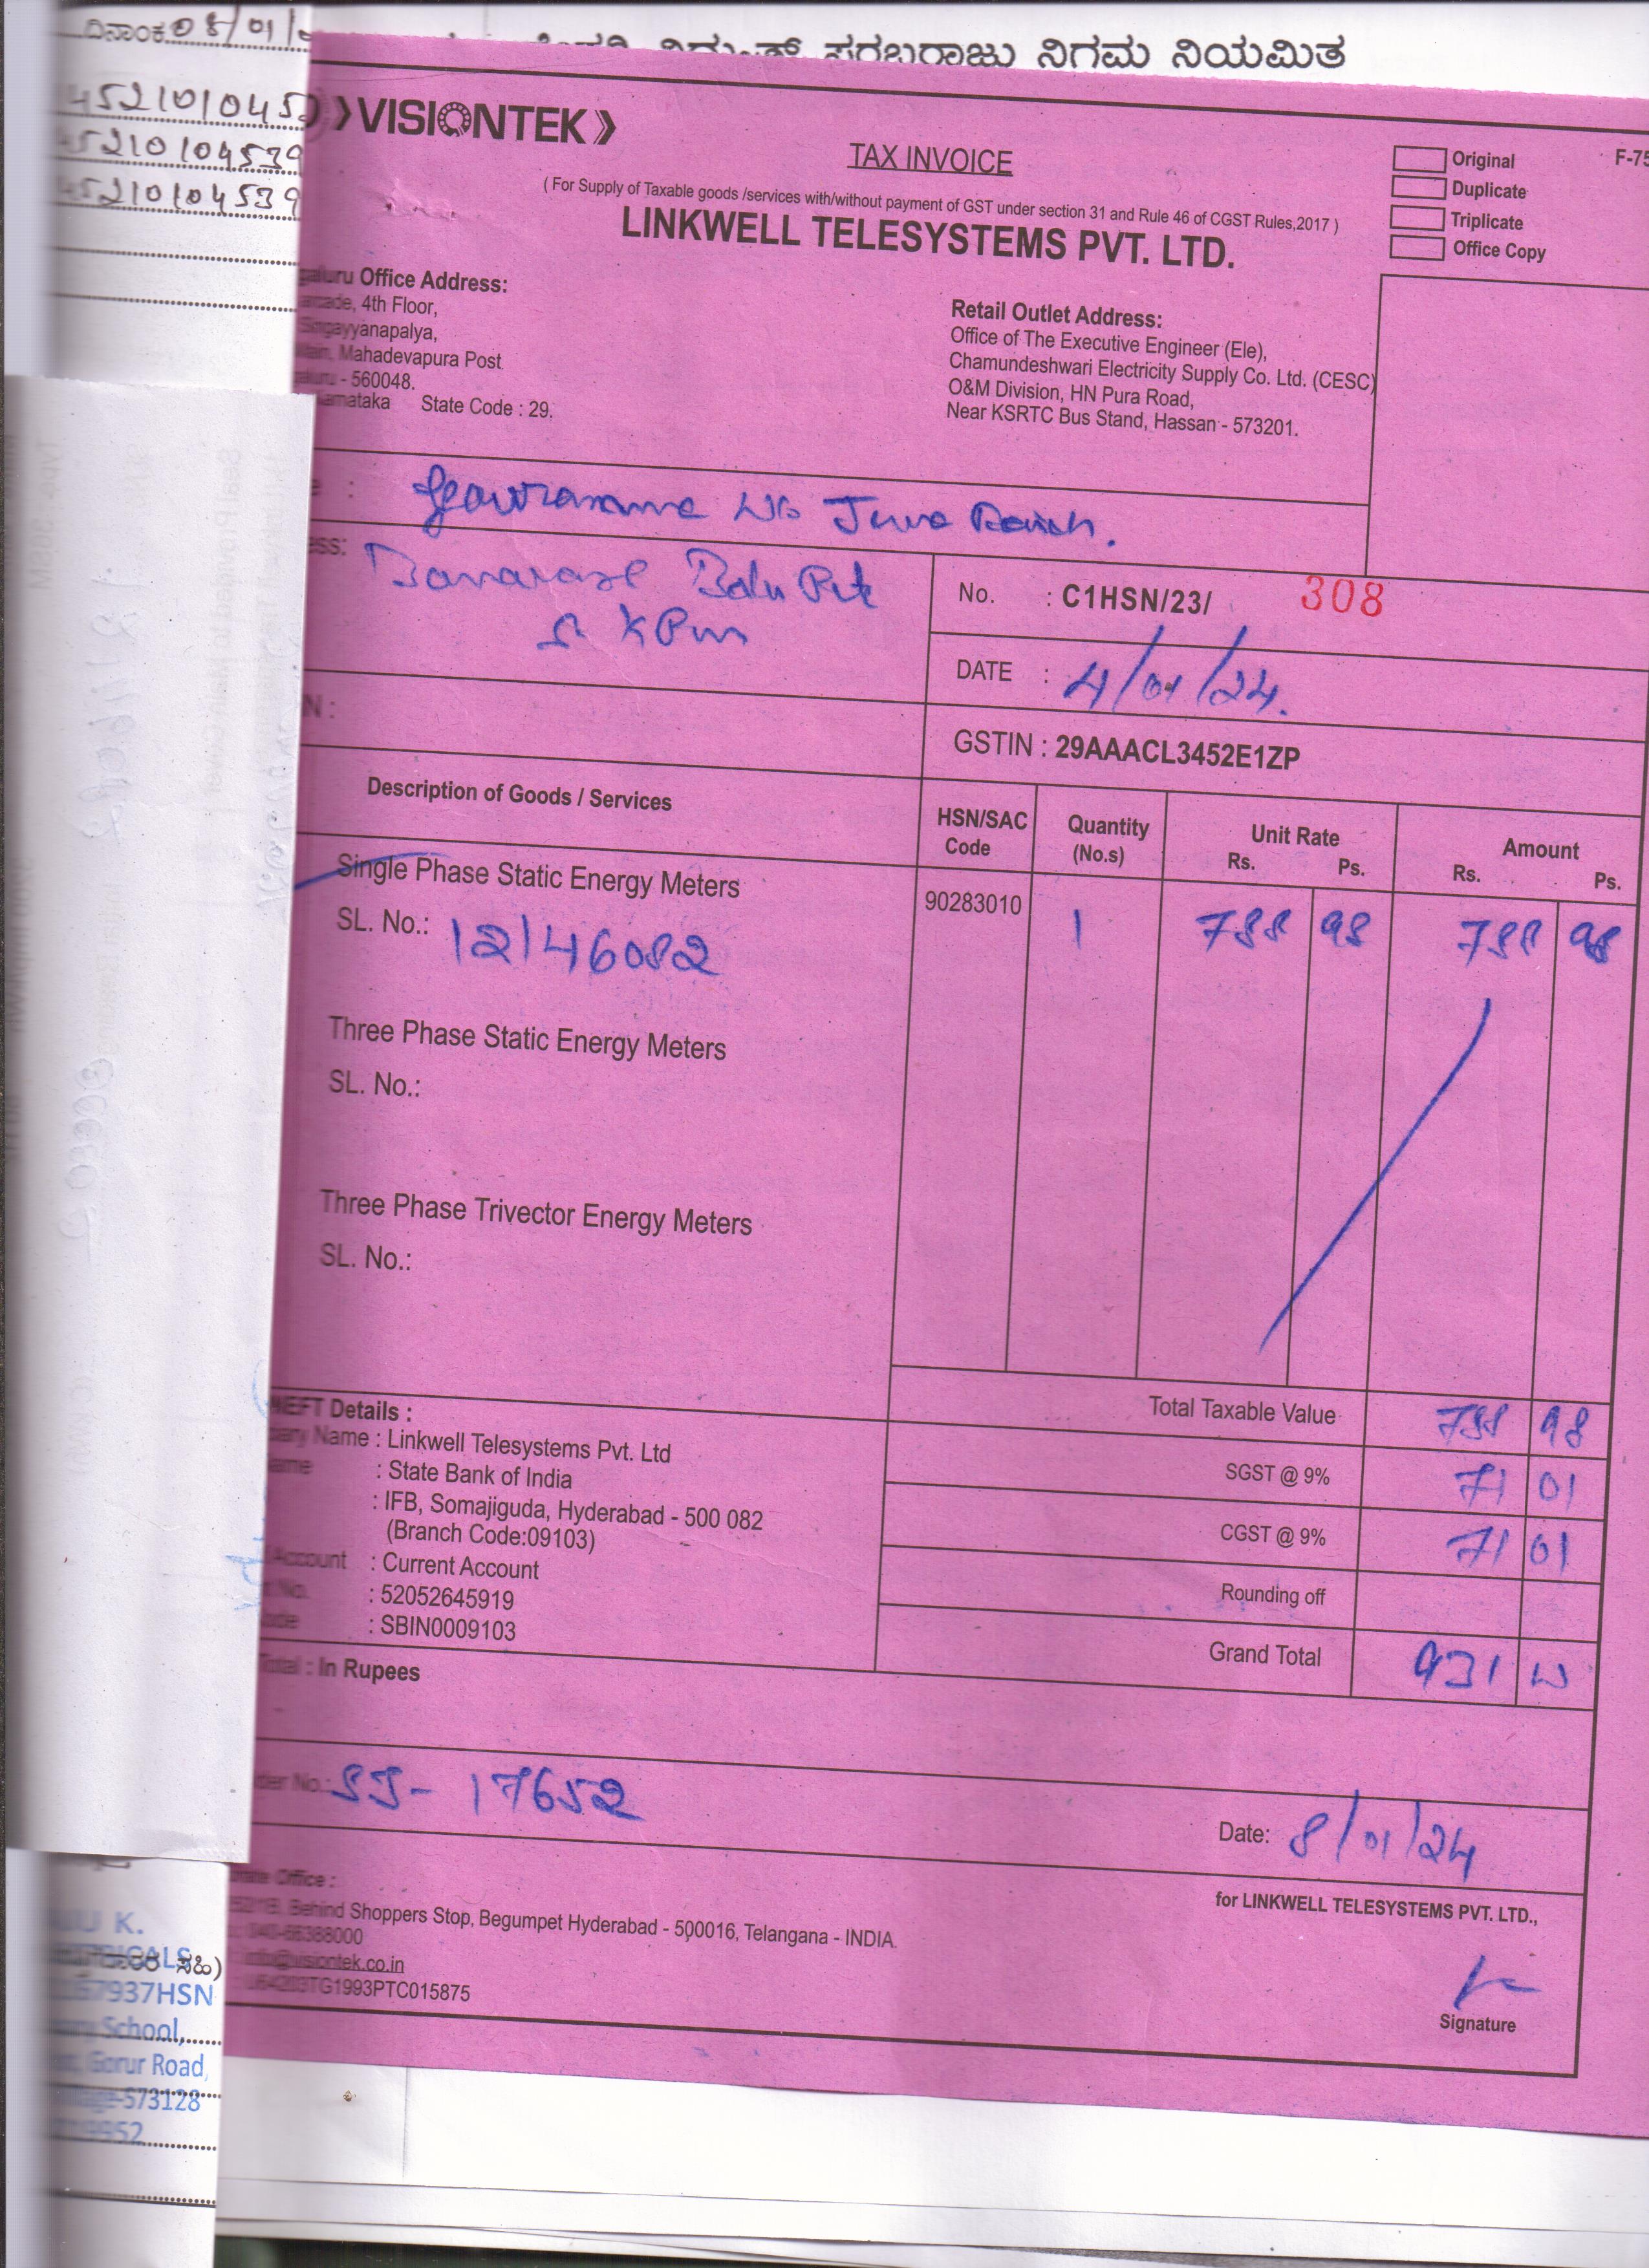 ದಿನಾಂಕ 08/01/
ವಿದ್ಯುತ್ ಸರಬರಾಜು ನಿಗಮ ನಿಯಮಿತ
45210104539
45210104539
VISIONTEK
TAX INVOICE
( For Supply of Taxable goods /services with/without payment of GST under section 31 and Rule 46 of CGST Rules,2017 )
LINKWELL TELESYSTEMS PVT. LTD.
Original
Duplicate
Triplicate
Office Copy
F-75
galuru Office Address:
arcade, 4th Floor,
Singayyanapalya,
Main, Mahadevapura Post
galuru - 560048.
arnataka State Code : 29.
Retail Outlet Address:
Office of The Executive Engineer (Ele),
Chamundeshwari Electricity Supply Co. Ltd. (CESC)
O&M Division, HN Pura Road,
Near KSRTC Bus Stand, Hassan - 573201.
: W/o
ess:
No. : C1HSN/23/ 308
DATE : 4/01/24.
N :
GSTIN : 29AAACL3452E1ZP
Description of Goods / Services
HSN/SAC Code
Quantity (No.s)
Unit Rate Rs. Ps.
Amount Rs. Ps.
Single Phase Static Energy Meters
90283010 1 788 98 788 98
SL. No.: 12146082
Three Phase Static Energy Meters
SL. No.:
Three Phase Trivector Energy Meters
SL. No.:
Total Taxable Value 788 98
SGST @ 9% 71 01
CGST @ 9% 71 01
Rounding off
Grand Total 931 00
NEFT Details :
pany Name : Linkwell Telesystems Pvt. Ltd
ame : State Bank of India
: IFB, Somajiguda, Hyderabad - 500 082
(Branch Code:09103)
Account : Current Account
t No. : 52052645919
ode : SBIN0009103
Total : In Rupees
der No.: SJ- 17652
Date: 8/01/24
rate Office :
Behind Shoppers Stop, Begumpet Hyderabad - 500016, Telangana - INDIA.
: 040-66388000
info@visiontek.co.in
: U64203TG1993PTC015875
for LINKWELL TELESYSTEMS PVT. LTD.,
Signature
K.
ಸಹಿ)
7937HSN
School,
Gorur Road,
-573128
9952